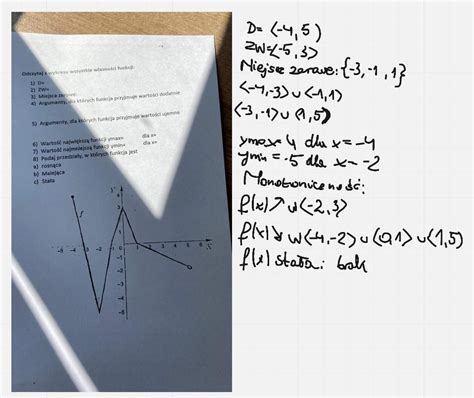 Odczytaj z wykresu wszystkie własności funkcji:
1) D=
2) ZW=
3) Miejsca zerowe:
4) Argumenty, dla których funkcja przyjmuje wartości dodatnie
5) Argumenty, dla których funkcja przyjmuje wartości ujemne
6) Wartość największą funkcji ymax= dla x=
7) Wartość najmniejszą funkcji ymin= dla x=
8) Podaj przedziały, w których funkcja jest
a) rosnąca
b) Malejąca
c) Stała
D= ⟨-4,5⟩
ZW=⟨-5,3⟩
Miejsce zerowe: {-3,-1,1}
⟨-4,-3) ∪ (-1,1)
(-3,-1) ∪ (1,5⟩
ymax= 4 dla x= -4
ymin= -5 dla x= -2
Monotoniczność:
f(x)↗ w⟨-2,3⟩
f(x)↘ w⟨-4,-2⟩ ∪ ⟨0,1⟩ ∪ ⟨1,5⟩
f(x) stała: brak